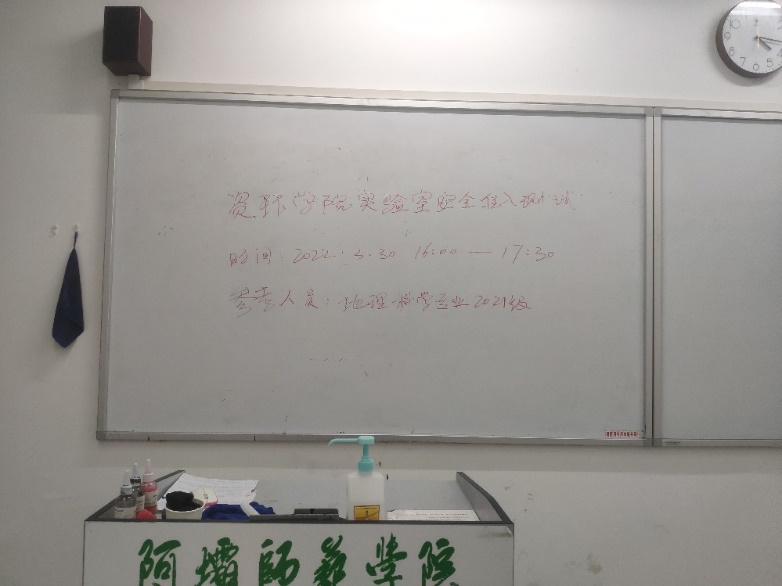 资环学院实验室安全准入测试
时间: 2022.3.30 16:00 — 17:30
参考人员: 地理科学专业2021级
阿壩師范學院